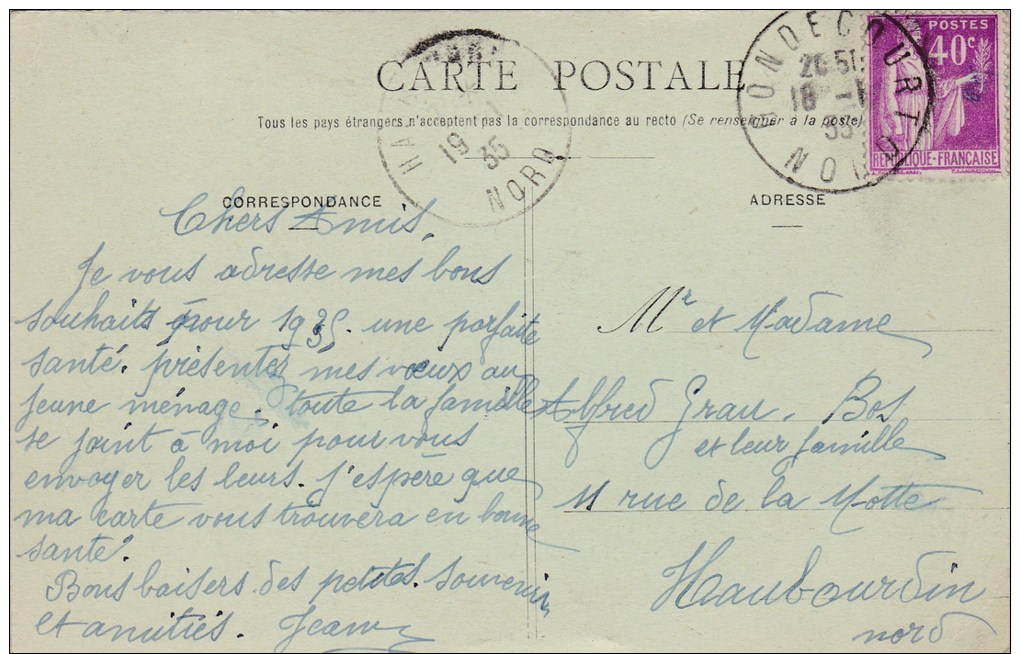 CARTE POSTALE
Tous les pays étrangers n'acceptent pas la correspondance au recto (Se renseigner à la poste)
GONDECOURT
20 51
18 -1
35
NORD
19 35
NORD
POSTES
40c
REPUBLIQUE-FRANÇAISE
CORRESPONDANCE
Chers Amis,
Je vous adresse mes bons
souhaits pour 1935. une parfaite
santé. présentés mes vœux au
jeune ménage. toute la famille
se joint à moi pour vous
envoyer les leurs. j'espère que
ma carte vous trouvera en bonne
santé.
Bons baisers des petites. souvenir
et amitiés. Jeanne
ADRESSE
Mr et Madame
Alfred Grau. Bos
et leur famille
11 rue de la Motte
Haubourdin
nord